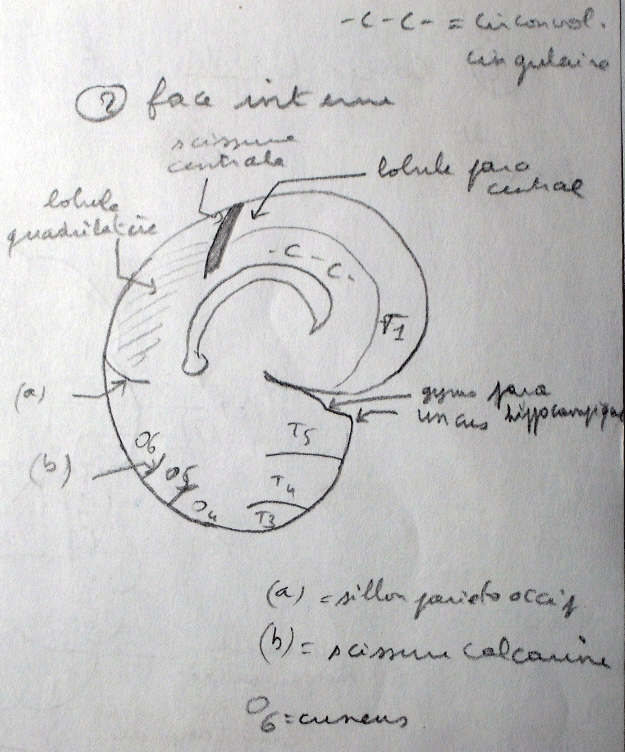 -C-C- = Circonvol.
cingulaire
② face interne
scissure
centrale
lobule para
central
lobule
quadrilatère
-C-C-
F1
(a)
gyrus para
uncus hippocampique
(b)
O6
O5
O4
T5
T4
T3
(a) = sillon parieto occip
(b) = scissure calcarine
O6 = cuneus